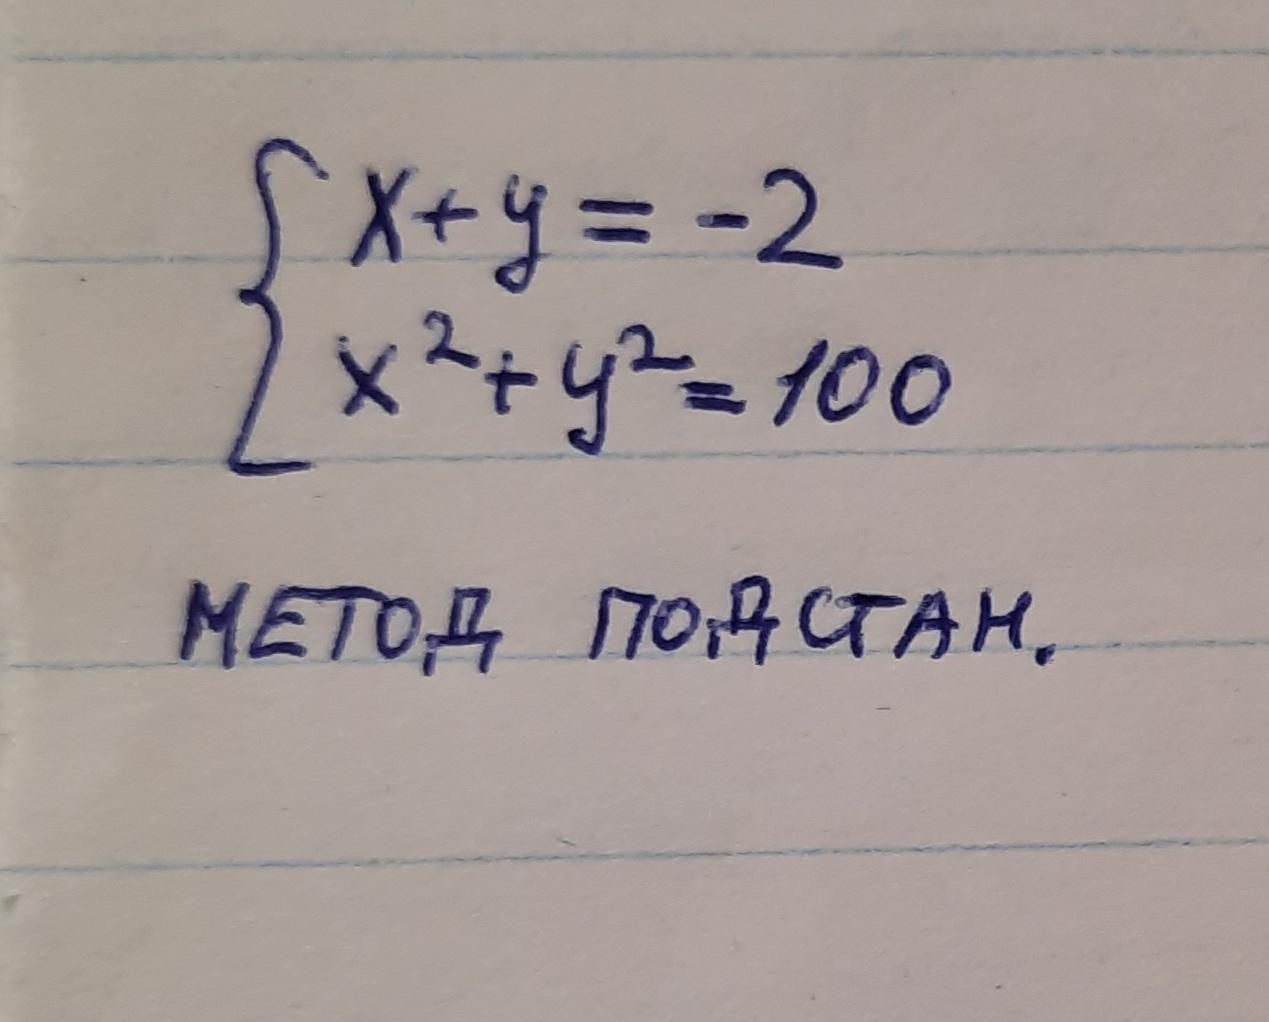 x+y=-2
x²+y²=100
МЕТОД ПОДСТАН.